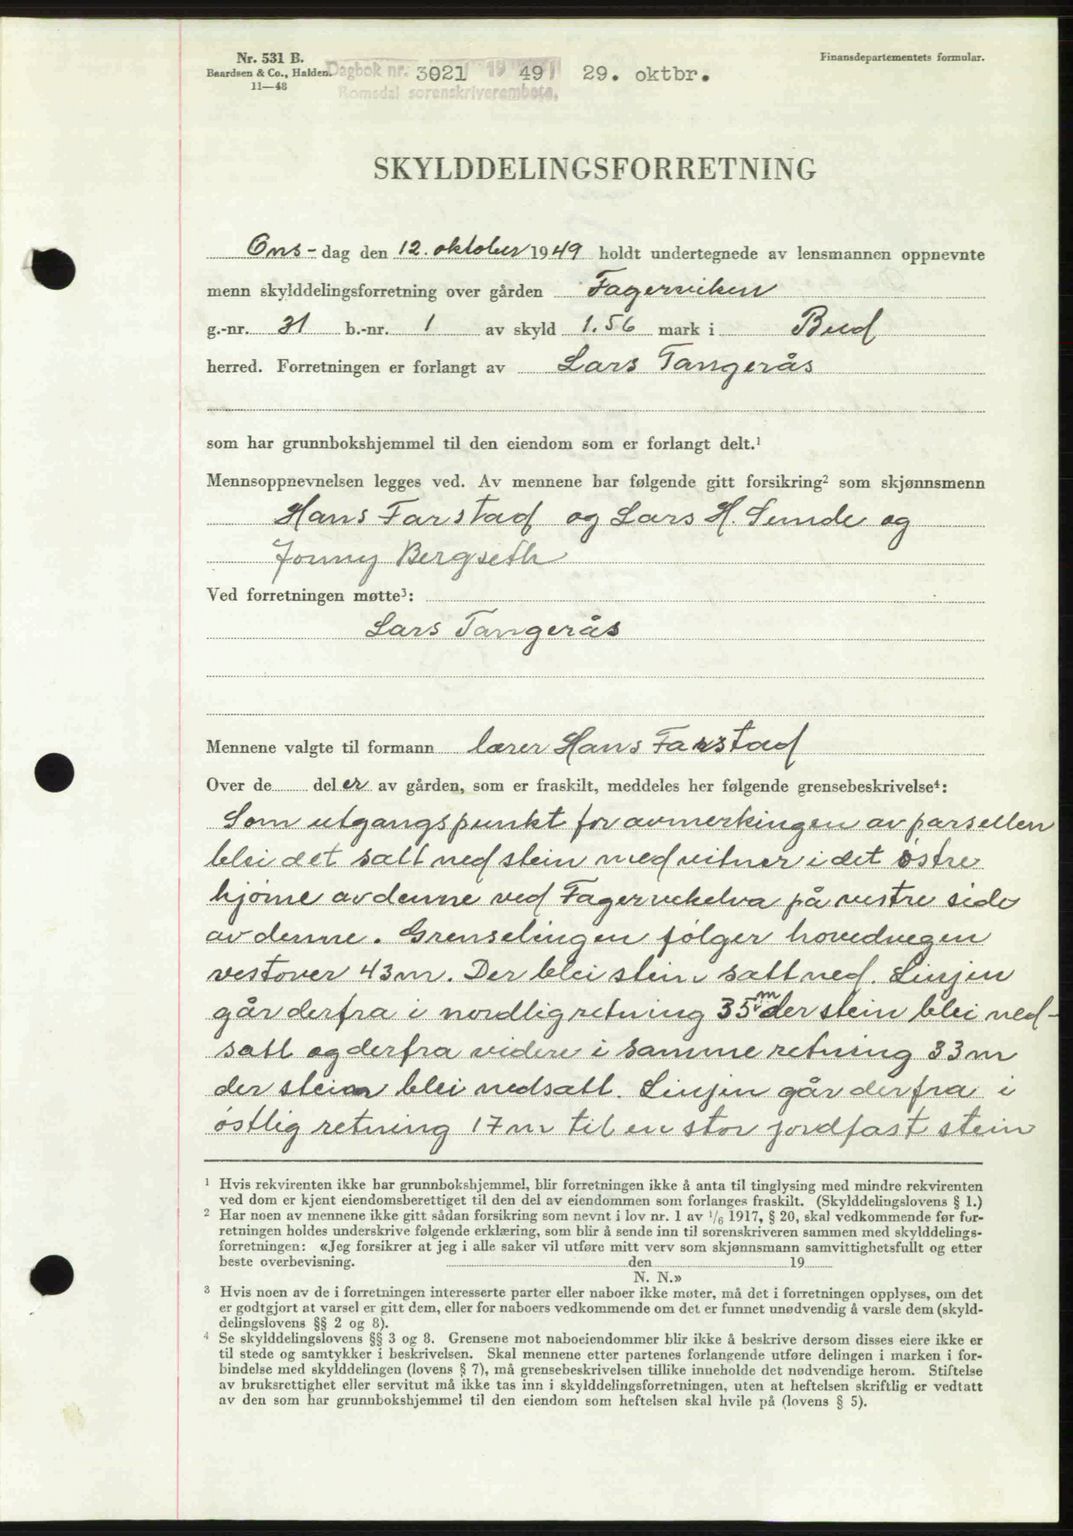 Nr. 531 B.
Baardsen & Co., Halden.
11—48
Dagbok nr. 3021 1949 29. oktbr.
Romsdal sorenskriverembete.
Finansdepartementets formular.
SKYLDDELINGSFORRETNING
Ons- dag den 12. oktober 1949 holdt undertegnede av lensmannen oppnevnte
menn skylddelingsforretning over gården Fagerviken
g.-nr. 31 b.-nr. 1 av skyld 1.56 mark i Bud
herred. Forretningen er forlangt av Lars Tangerås
som har grunnbokshjemmel til den eiendom som er forlangt delt.¹
Mennsoppnevnelsen legges ved. Av mennene har følgende gitt forsikring² som skjønnsmenn
Hans Farstad og Lars H. Sunde og
Jonny Bergseth
Ved forretningen møtte³:
Lars Tangerås
Mennene valgte til formann lærer Hans Farstad
Over de del er av gården, som er fraskilt, meddeles her følgende grensebeskrivelse⁴:
Som utgangspunkt for avmerkingen av parsellen
blei det satt ned stein med vitner i det østre
hjørne av denne ved Fagervikelva på vestre side
av denne. Grenselingen følger hovedvegen
vestover 43m. Der blei stein satt ned. Linjen
går derfra i nordlig retning 35 m der stein blei ned-
satt og derfra videre i samme retning 33m
der stein blei nedsatt. Linjen går derfra i
østlig retning 17m til en stor jordfast stein
¹ Hvis rekvirenten ikke har grunnbokshjemmel, blir forretningen ikke å anta til tinglysing med mindre rekvirenten
ved dom er kjent eiendomsberettiget til den del av eiendommen som forlanges fraskilt. (Skylddelingslovens § 1.)
² Har noen av mennene ikke gitt sådan forsikring som nevnt i lov nr. 1 av 1/6 1917, § 20, skal vedkommende før for-
retningen holdes underskrive følgende erklæring, som blir å sende inn til sorenskriveren sammen med skylddelings-
forretningen: «Jeg forsikrer at jeg i alle saker vil utføre mitt verv som skjønnsmann samvittighetsfullt og etter
beste overbevisning. den 19
N. N.»
³ Hvis noen av de i forretningen interesserte parter eller naboer ikke møter, må det i forretningen opplyses, om det
er godtgjort at varsel er gitt dem, eller for naboers vedkommende om det er funnet unødvendig å varsle dem (skyld-
delingslovens §§ 2 og 8).
⁴ Se skylddelingslovens §§ 3 og 8. Grensene mot naboeiendommer blir ikke å beskrive dersom disses eiere ikke er
til stede og samtykker i beskrivelsen. Skal mennene etter partenes forlangende utføre delingen i marken i for-
bindelse med skylddelingen (lovens § 7), må grensebeskrivelsen tillike inneholde det nødvendige herom. Stiftelse
av bruksrettighet eller servitut må ikke tas inn i skylddelingsforretningen, uten at heftelsen skriftlig er vedtatt
av den som har grunnbokshjemmel til den eiendom som heftelsen skal hvile på (lovens § 5).